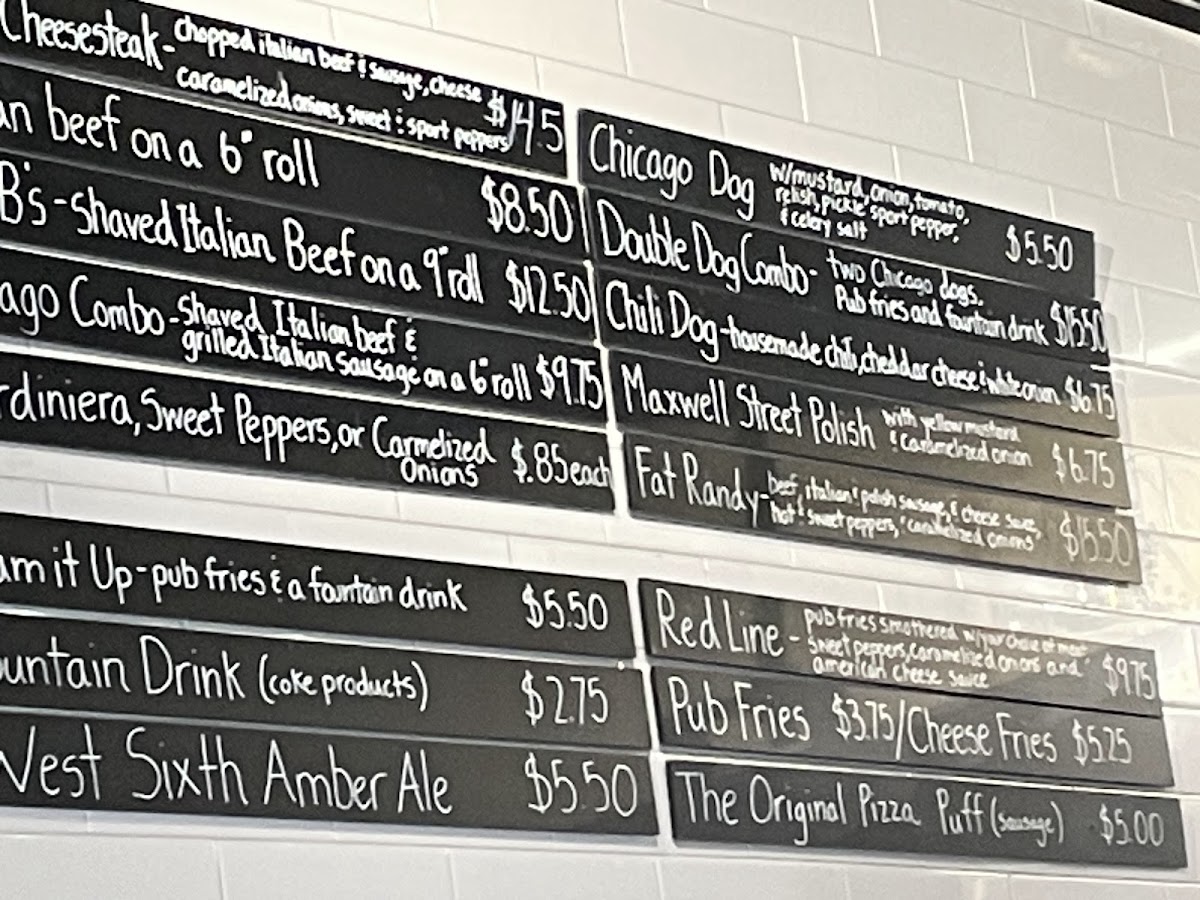 Cheesesteak- Chopped italian beef & sausage, cheese
caramelized onions, sweet & sport peppers $14.5
an beef on a 6" roll $8.50
B's-shaved Italian Beef on a 9" roll $12.50
ago Combo-Shaved Italian beef &
grilled Italian Sausage on a 6" roll $9.75
rdiniera, Sweet Peppers, or Carmelized
Onions $.85 each
am it Up-pub fries & a fountain drink $5.50
untain Drink (coke products) $2.75
West Sixth Amber Ale $5.50
Chicago Dog w/mustard, onion, tomato,
relish, pickle sport pepper,
& celery salt $5.50
Double Dog Combo- two Chicago dogs.
Pub fries and fountain drink $15.50
Chili Dog-housemade chili, cheddar cheese & white onion $6.75
Maxwell Street Polish with yellow mustard
& caramelized onion $6.75
Fat Randy-beef, italian & polish sausage, & cheese sauce,
hot & sweet peppers, & caramelized onions $15.50
Red Line - pub fries smothered w/your choice of meat
sweet peppers, caramelized onions and
american cheese sauce $9.75
Pub Fries $3.75/Cheese Fries $5.25
The Original Pizza Puff (sausage) $5.00